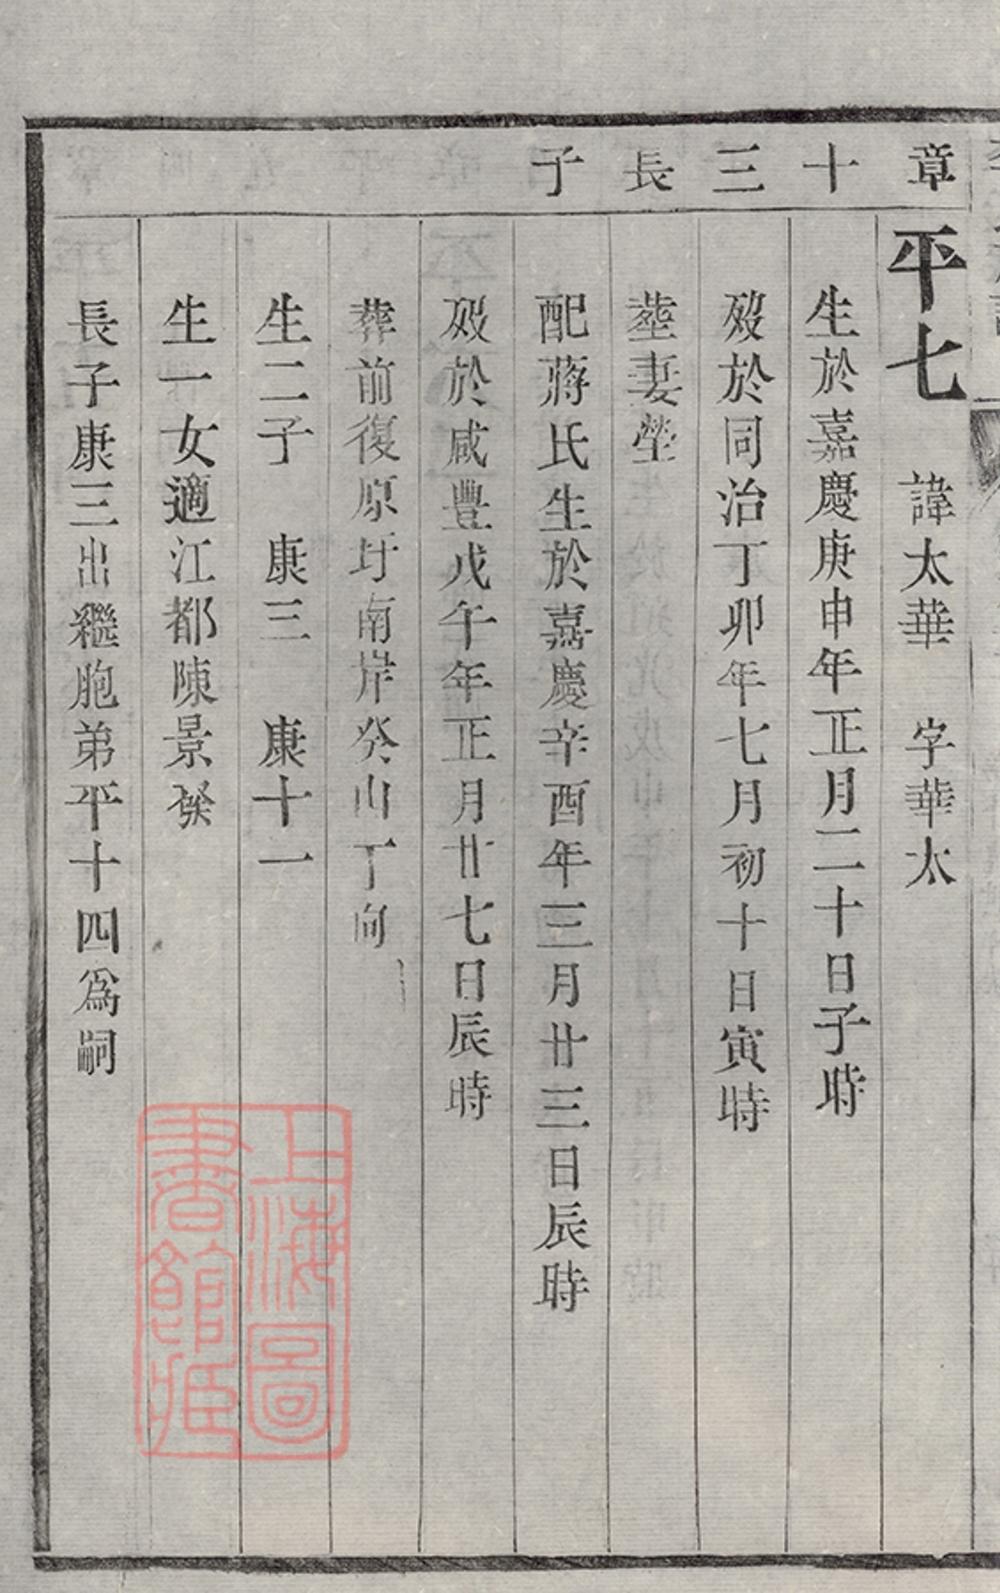 章十三長子
平七 諱太華 字華太
生於嘉慶庚申年正月二十日子時
歿於同治丁卯年七月初十日寅時
葬妻塋
配蔣氏生於嘉慶辛酉年三月廿三日辰時
歿於咸豐戊午年正月廿七日辰時
葬前復原圩南岸癸山丁向
生二子 康三 康十一
生一女適江都陳景
長子康三出繼胞弟平十四為嗣
上海圖
書館藏